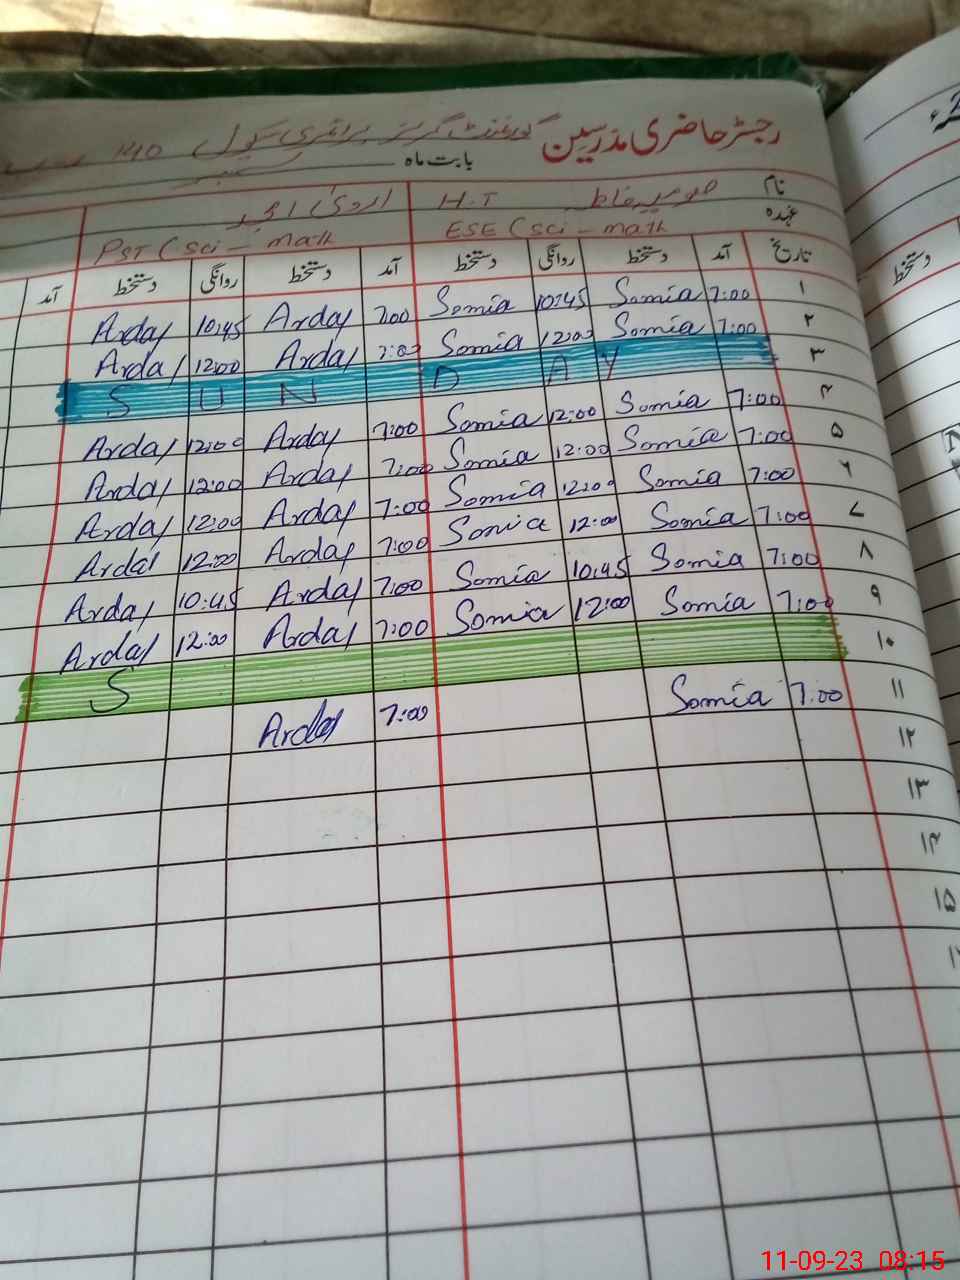 رجسٹر حاضری مدرسین گورنمنٹ گرلز پرائمری سکول 140
بابت ماہ ستمبر
نام صومیہ فاطمہ H.T
عہدہ ESE (sci - math PST (sci - math
تاریخ آمد دستخط روانگی دستخط آمد دستخط روانگی دستخط آمد
۱ 7:00 Somia 10:45 Somia 7:00 Arday 10:45 Arday
۲ 7:00 Somia 12:00 Somia 7:00 Arday 12:00 Arday
۳ S U N D A Y
۴ 7:00 Somia 12:00 Somia 7:00 Arday 12:00 Arday
۵ 7:00 Somia 12:00 Somia 7:00 Arday 12:00 Arday
۶ 7:00 Somia 12:00 Somia 7:00 Arday 12:00 Arday
۷ 7:00 Somia 12:00 Somia 7:00 Arday 12:00 Arday
۸ 7:00 Somia 10:45 Somia 7:00 Arday 10:45 Arday
۹ 7:00 Somia 12:00 Somia 7:00 Arday 12:00 Arday
۱۰ S
۱۱ 7:00 Somia 7:00 Arday
۱۲
۱۳
۱۴
۱۵
دستخط
11-09-23 08:15